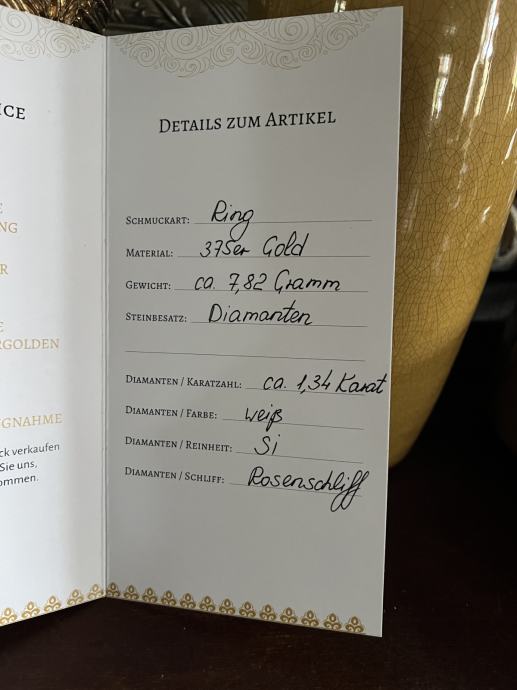 ICE
E
NG
R
E
RGOLDEN
GNAHME
ck verkaufen
Sie uns,
ommen.
Details zum Artikel
Schmuckart: Ring
Material: 375er Gold
Gewicht: ca. 7,82 Gramm
Steinbesatz: Diamanten
Diamanten / Karatzahl: ca. 1,34 Karat
Diamanten / Farbe: weiß
Diamanten / Reinheit: Si
Diamanten / Schliff: Rosenschliff